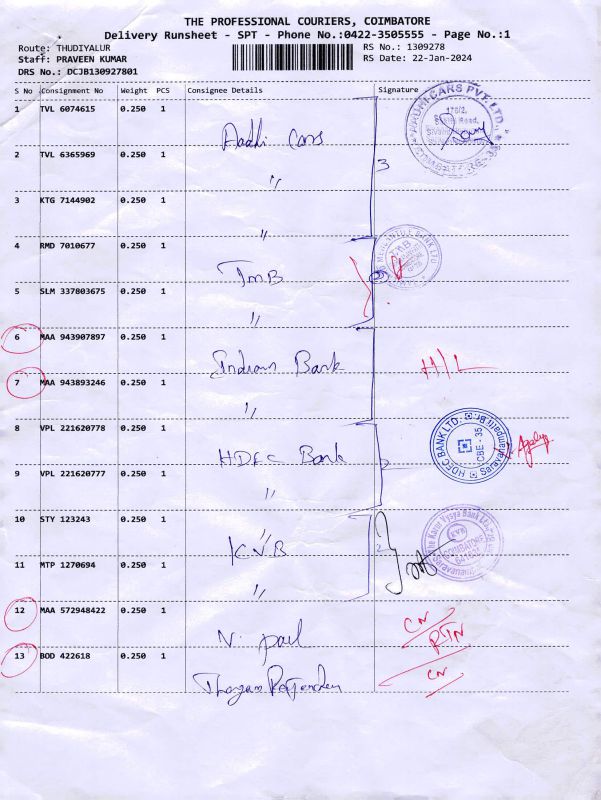 THE PROFESSIONAL COURIERS, COIMBATORE
Delivery Runsheet - SPT - Phone No.:0422-3505555 - Page No.:1
Route: THUDIYALUR
RS No.: 1309278
Staff: PRAVEEN KUMAR
RS Date: 22-Jan-2024
DRS No.: DCJB130927801
S No Consignment No Weight PCS Consignee Details Signature
1 TVL 6074615 0.250 1 Aadhi Cars
3
2 TVL 6365969 0.250 1 "
3 KTG 7144902 0.250 1 "
4 RMD 7010677 0.250 1 TMB
5 SLM 337803675 0.250 1 "
6 MAA 943907897 0.250 1 Indian Bank H/L
7 MAA 943893246 0.250 1 "
8 VPL 221620778 0.250 1 HDFC Bank
HDFC BANK LTD.
CBE - 35
9 VPL 221620777 0.250 1 "
10 STY 123243 0.250 1 KVB
2
The Karur Vysya Bank Ltd.
KVB
COIMBATORE
641 035
11 MTP 1270694 0.250 1 "
12 MAA 572948422 0.250 1 N. paul CN
RTN
13 BOD 422618 0.250 1 CN